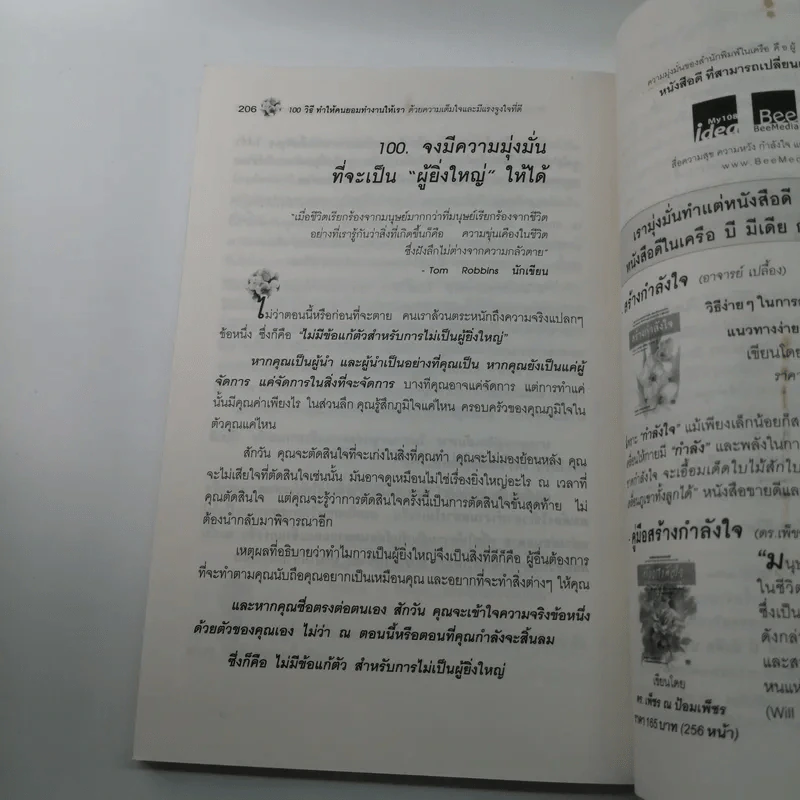 206
100 วิธี ทำให้คนยอมทำงานให้เรา ด้วยความเต็มใจและมีแรงจูงใจที่ดี
100. จงมีความมุ่งมั่น
ที่จะเป็น “ผู้ยิ่งใหญ่” ให้ได้
“เมื่อชีวิตเรียกร้องจากมนุษย์มากกว่าที่มนุษย์เรียกร้องจากชีวิต
อย่างที่เรารู้กันว่าสิ่งที่เกิดขึ้นก็คือ ความขุ่นเคืองในชีวิต
ซึ่งฝังลึกไม่ต่างจากความกลัวตาย”
- Tom Robbins นักเขียน
ไม่ว่าตอนนี้หรือก่อนที่จะตาย คนเราล้วนตระหนักถึงความจริงแปลกๆ
ข้อหนึ่ง ซึ่งก็คือ “ไม่มีข้อแก้ตัวสำหรับการไม่เป็นผู้ยิ่งใหญ่”
หากคุณเป็นผู้นำ และผู้นำเป็นอย่างที่คุณเป็น หากคุณยังเป็นแค่ผู้
จัดการ แค่จัดการในสิ่งที่จะจัดการ บางทีคุณอาจแค่จัดการ แต่การทำแค่
นั้นมีคุณค่าเพียงไร ในส่วนลึก คุณรู้สึกภูมิใจแค่ไหน ครอบครัวของคุณภูมิใจใน
ตัวคุณแค่ไหน
สักวัน คุณจะตัดสินใจที่จะเก่งในสิ่งที่คุณทำ คุณจะไม่มองย้อนหลัง คุณ
จะไม่เสียใจที่ตัดสินใจเช่นนั้น มันอาจดูเหมือนไม่ใช่เรื่องยิ่งใหญ่อะไร ณ เวลาที่
คุณตัดสินใจ แต่คุณจะรู้ว่าการตัดสินใจครั้งนี้เป็นการตัดสินใจขั้นสุดท้าย ไม่
ต้องนำกลับมาพิจารณาอีก
เหตุผลที่อธิบายว่าทำไมการเป็นผู้ยิ่งใหญ่จึงเป็นสิ่งที่ดีก็คือ ผู้อื่นต้องการ
ที่จะทำตามคุณนับถือคุณอยากเป็นเหมือนคุณ และอยากที่จะทำสิ่งต่างๆ ให้คุณ
และหากคุณซื่อตรงต่อตนเอง สักวัน คุณจะเข้าใจความจริงข้อหนึ่ง
ด้วยตัวของคุณเอง ไม่ว่า ณ ตอนนี้หรือตอนที่คุณกำลังจะสิ้นลม
ซึ่งก็คือ ไม่มีข้อแก้ตัว สำหรับการไม่เป็นผู้ยิ่งใหญ่
ความมุ่งมั่นของสำนักพิมพ์ในเครือ คือ ผู้
หนังสือดี ที่สามารถเปลี่ยน
My108
idea
Bee
BeeMedia
สื่อความสุข ความหวัง กำลังใจ
www.BeeMed
เรามุ่งมั่นทำแต่หนังสือดี
หนังสือดีในเครือ บี มีเดีย
สร้างกำลังใจ (อาจารย์ เปลื้อง)
วิธีง่ายๆ ในการ
แนวทางง่าย
เขียนโดย
ราคา
“กำลังใจ” แม้เพียงเล็กน้อยก็ส
ให้กายมี “กำลัง” และพลังในกา
กำลังใจ จะเอื้อมเด็ดใบไม้สักใบ
ภูเขาทั้งลูกได้” หนังสือขายดีและ
คู่มือสร้างกำลังใจ (ดร.เพ็ชร
“มนุษ
ในชีวิต
ซึ่งเป็น
ดังกล่า
และส
หนแห
(Will
เขียนโดย
ดร. เพ็ชร ณ ป้อมเพ็ชร
ราคา 165 บาท (256 หน้า)